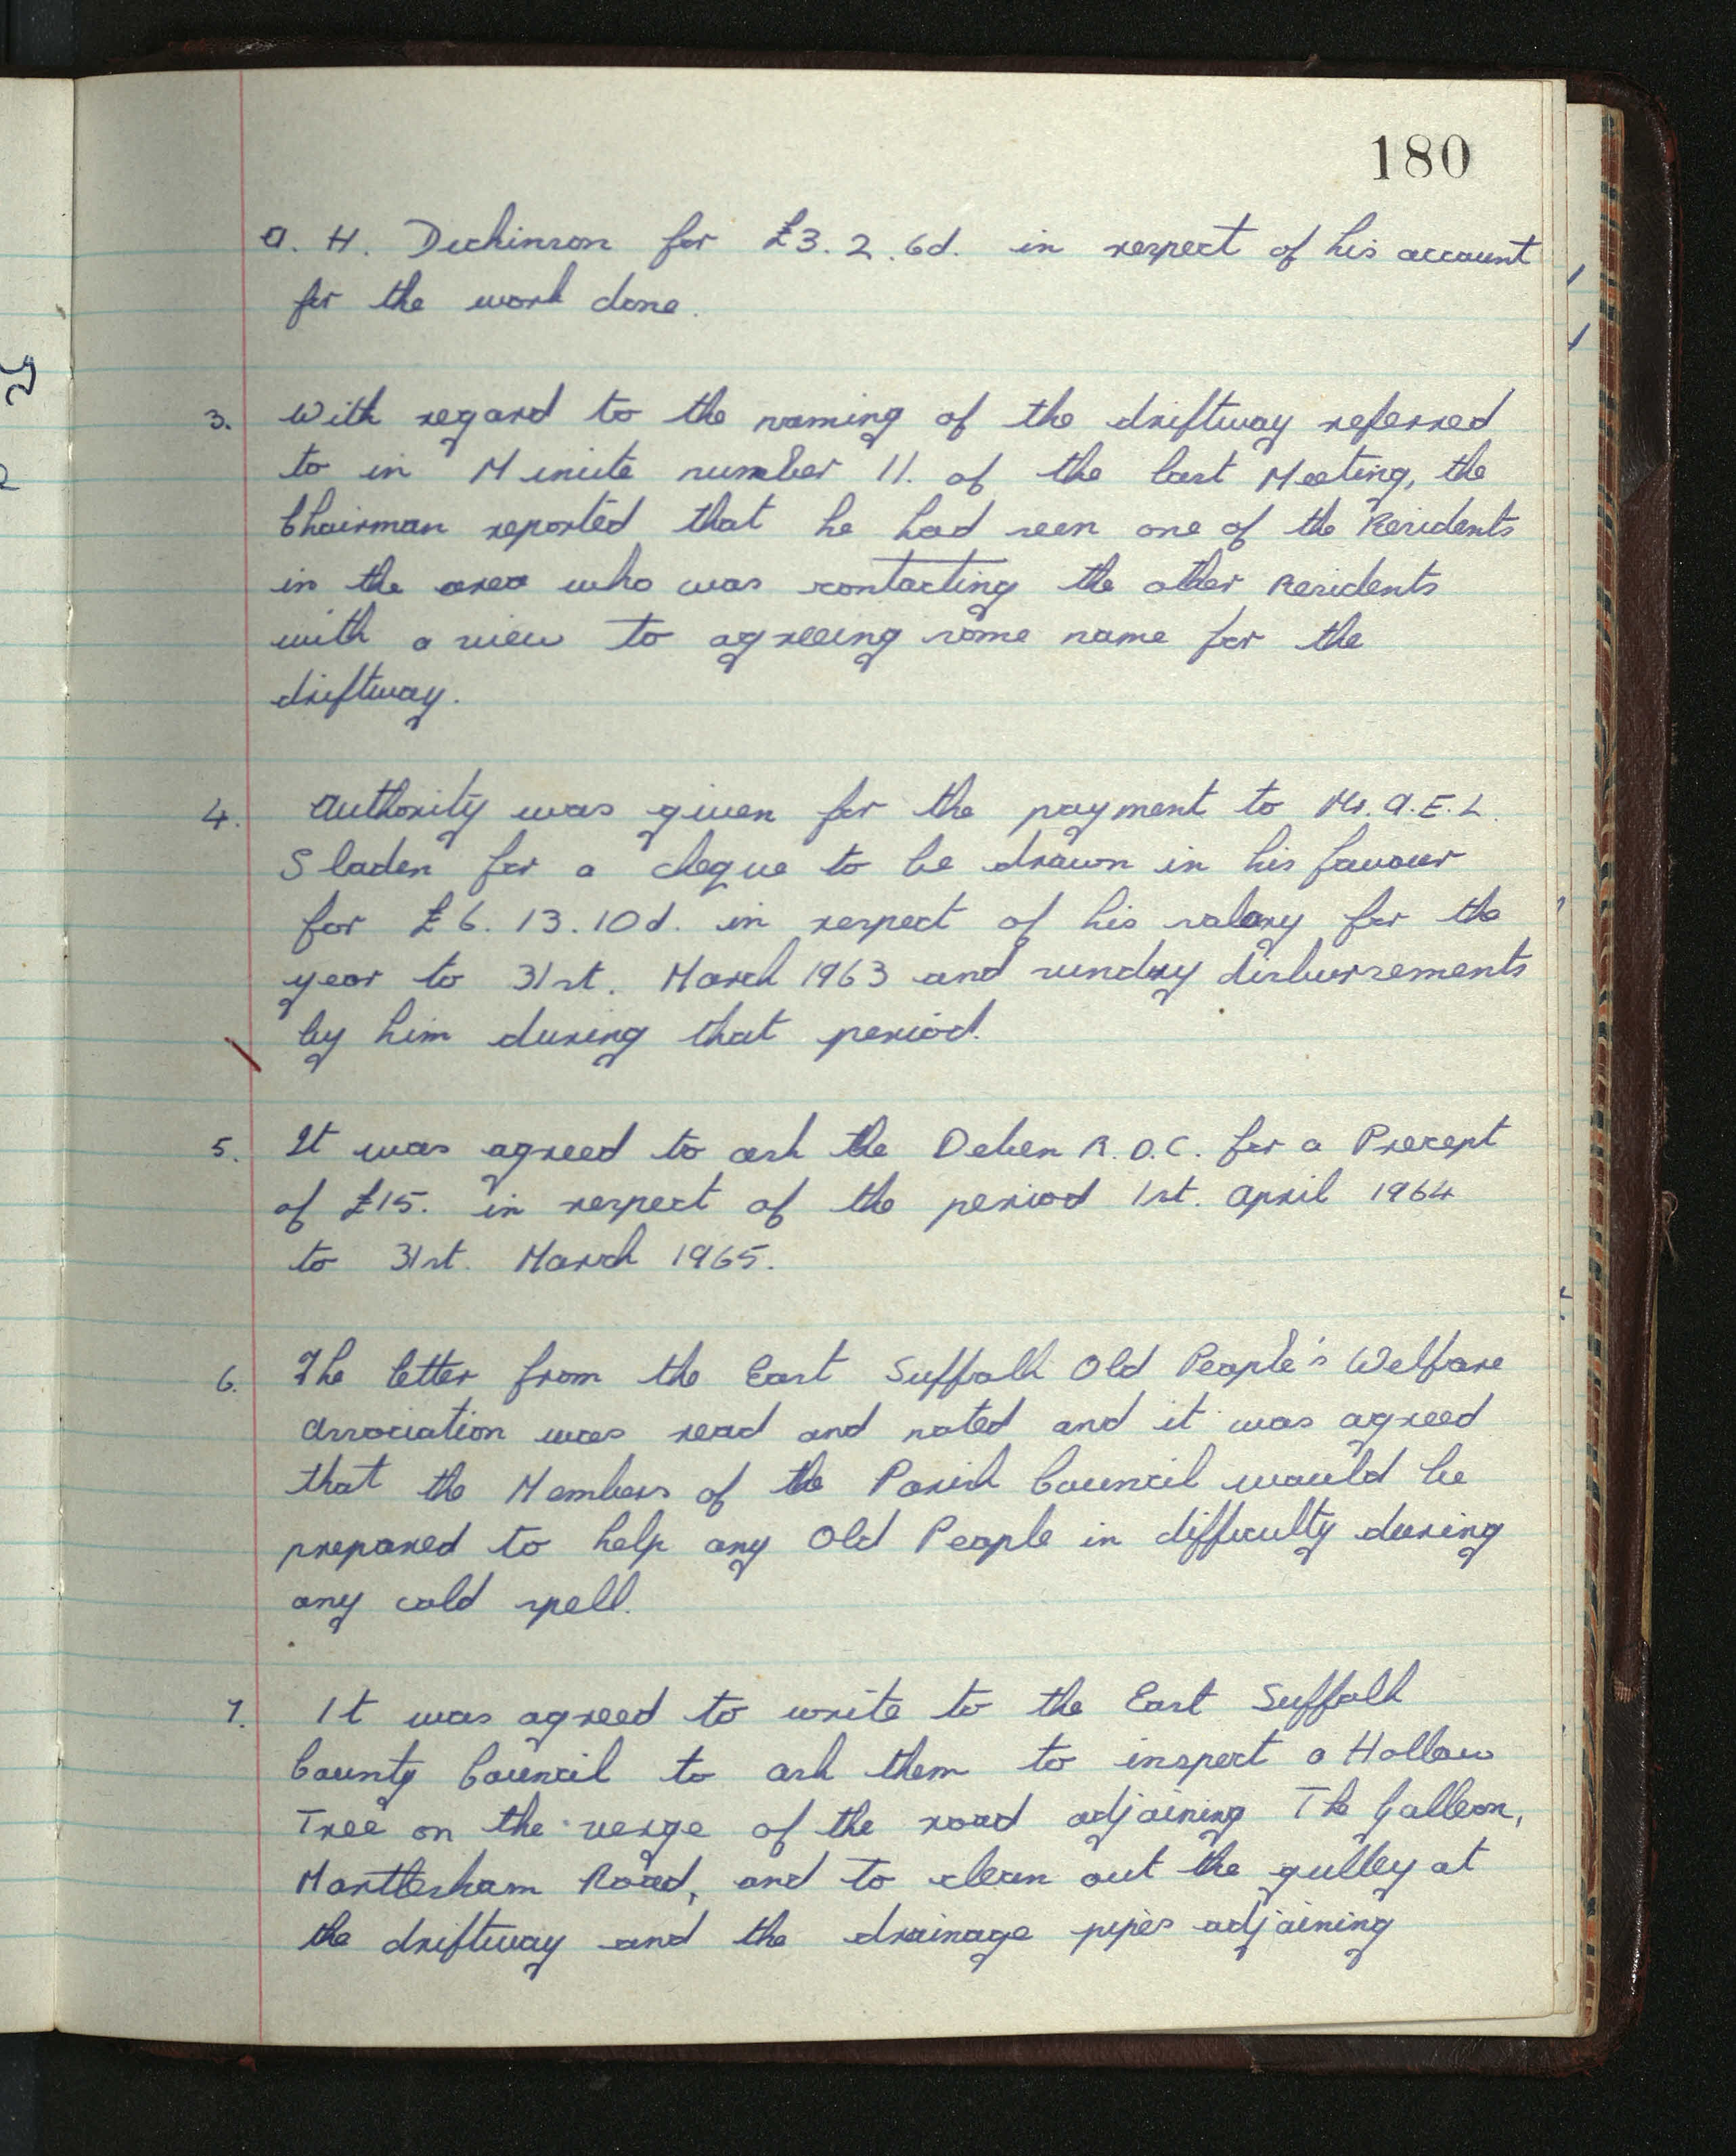 180
A. H. Dickinson for £3. 2. 6d. in respect of his account
for the work done.
3. With regard to the naming of the driftway referred
to in Minute number 11. of the last Meeting, the
Chairman reported that he had seen one of the Residents
in the area who was contacting the other Residents
with a view to agreeing some name for the
driftway.
4. Authority was given for the payment to Mr. A. E. L.
Sladen for a cheque to be drawn in his favour
for £6. 13. 10d. in respect of his salary for the
year to 31st. March 1963 and sundry disbursements
by him during that period.
5. It was agreed to ask the Deben R. D. C. for a Precept
of £15. in respect of the period 1st. April 1964
to 31st. March 1965.
6. The letter from the East Suffolk Old People's Welfare
Association was read and noted and it was agreed
that the Members of the Parish Council would be
prepared to help any Old People in difficulty during
any cold spell.
7. It was agreed to write to the East Suffolk
County Council to ask them to inspect a Hollow
Tree on the verge of the road adjoining The Galleon,
Martlesham Road, and to clean out the gulley at
the driftway and the drainage pipes adjoining